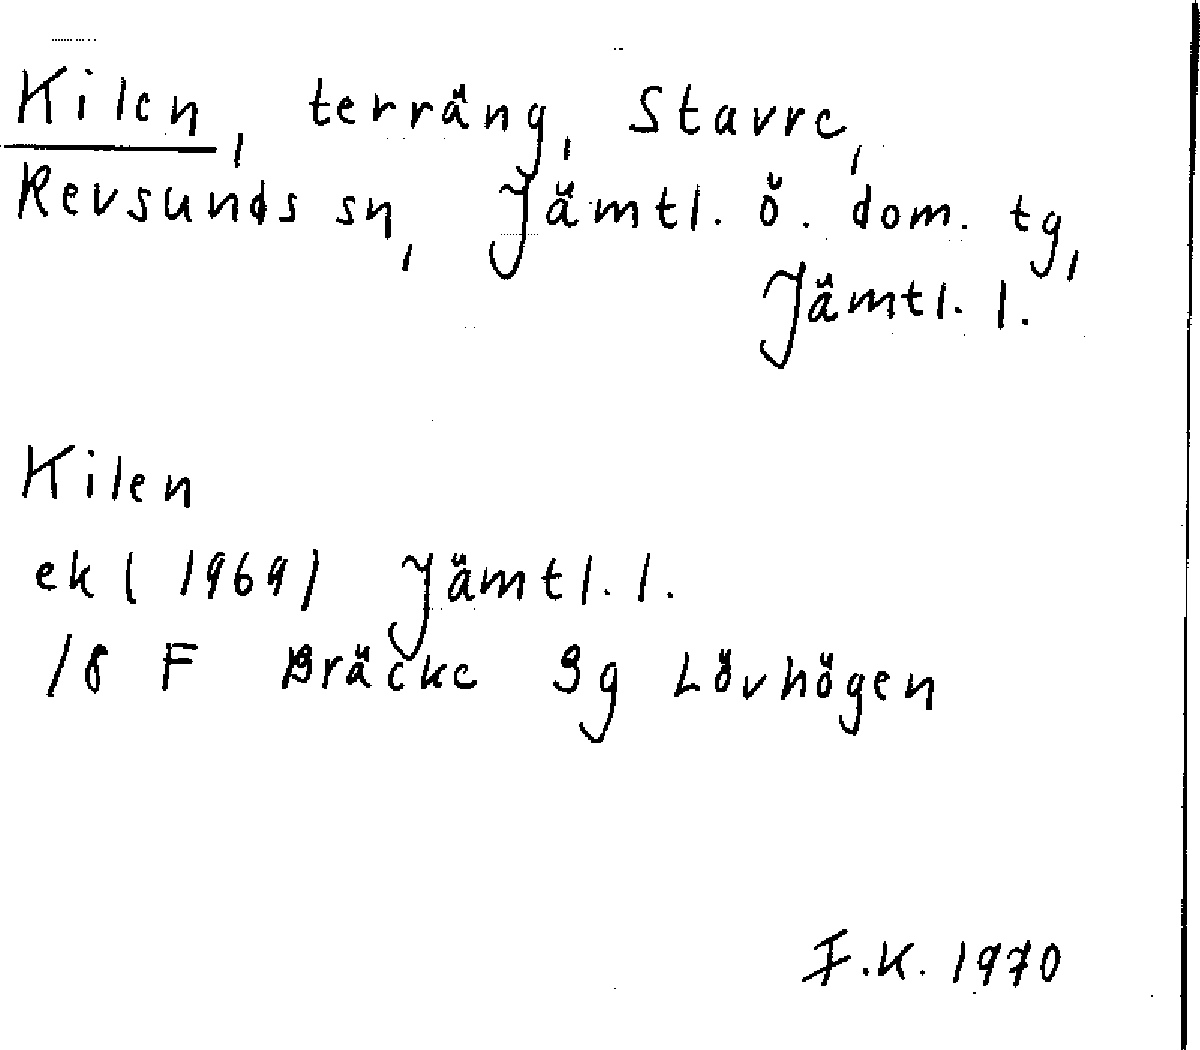 Kilen, terräng, Stavre,
Revsunds sn, Jämtl. ö. dom. tg,
Jämtl. l.
Kilen
ek (1969) Jämtl. l.
18 F Bräcke 9g Lövhögen
F.K. 1970